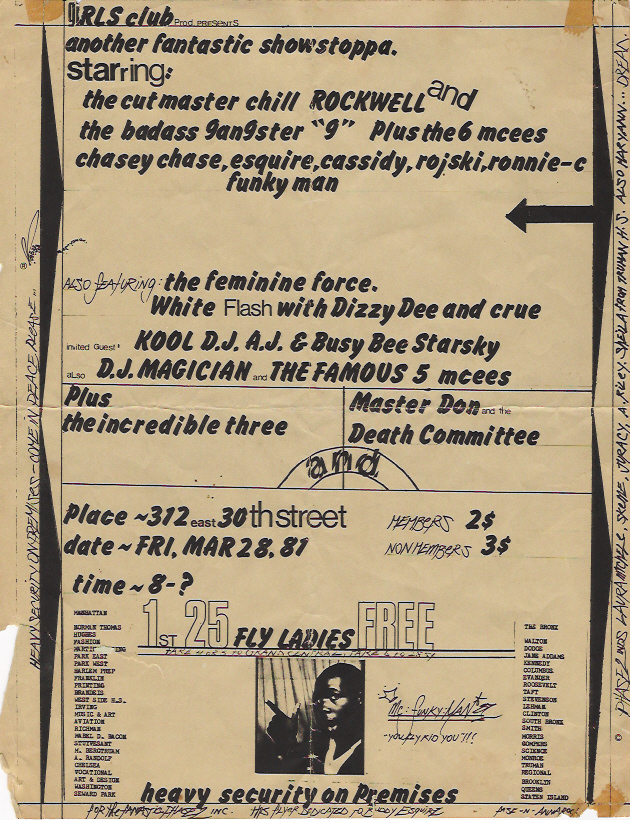 GiRLS club Prod. PRESENTS
another fantastic showstoppa.
starring:
the cutmaster chill ROCKWELL and
the badass gangster "9" Plus the 6 mcees
chasey chase, esquire, cassidy, rojski, ronnie-c
funky man
ALSO FEATURING: the feminine force.
White Flash with Dizzy Dee and crue
invited Guest: KOOL D.J. A.J. & Busy Bee Starsky
aLso D.J. MAGICIAN and THE FAMOUS 5 mcees
Plus
the incredible three
Master Don and the
Death Committee
and
Place ~312 east 30th street
date ~ FRI, MAR 28, 81
time ~ 8-?
MEMBERS 2$
NON MEMBERS 3$
1ST 25 FLY LADIES FREE
MANHATTAN
NORMAN THOMAS
HUGHES
FASHION
PARK EAST
PARK WEST
HARLEM PREP
FRANKLIN
PRINTING
BRANDEIS
WEST SIDE H.S.
IRVING
MUSIC & ART
AVIATION
RICHMAN
MABEL D. BACON
STUIVESANT
M. BERGTRUAM
A. RANDOLF
CHELSEA
VOCATIONAL
ART & DESIGN
WASHINGTON
SEWARD PARK
THE BRONX
WALTON
DODGE
JANE ADDAMS
KENNEDY
COLUMBUS
EVANDER
ROOSEVELT
TAFT
STEVENSON
LEHMAN
CLINTON
SOUTH BRONX
SMITH
MORRIS
GOMPERS
SCIENCE
MONROE
TRUMAN
REGIONAL
BROOKLYN
QUEENS
STATEN ISLAND
Mc. funky MAN
-YOU FLY KID YOU!!!
heavy security on Premises
FOR THE FANTASTIC PHASE 2 INC. THIS FLYER DEDICATED TO ESQUIRE
HEAVY SECURITY ON PREMISES - COME IN PEACE PLEASE...
ALSO MARYANN...